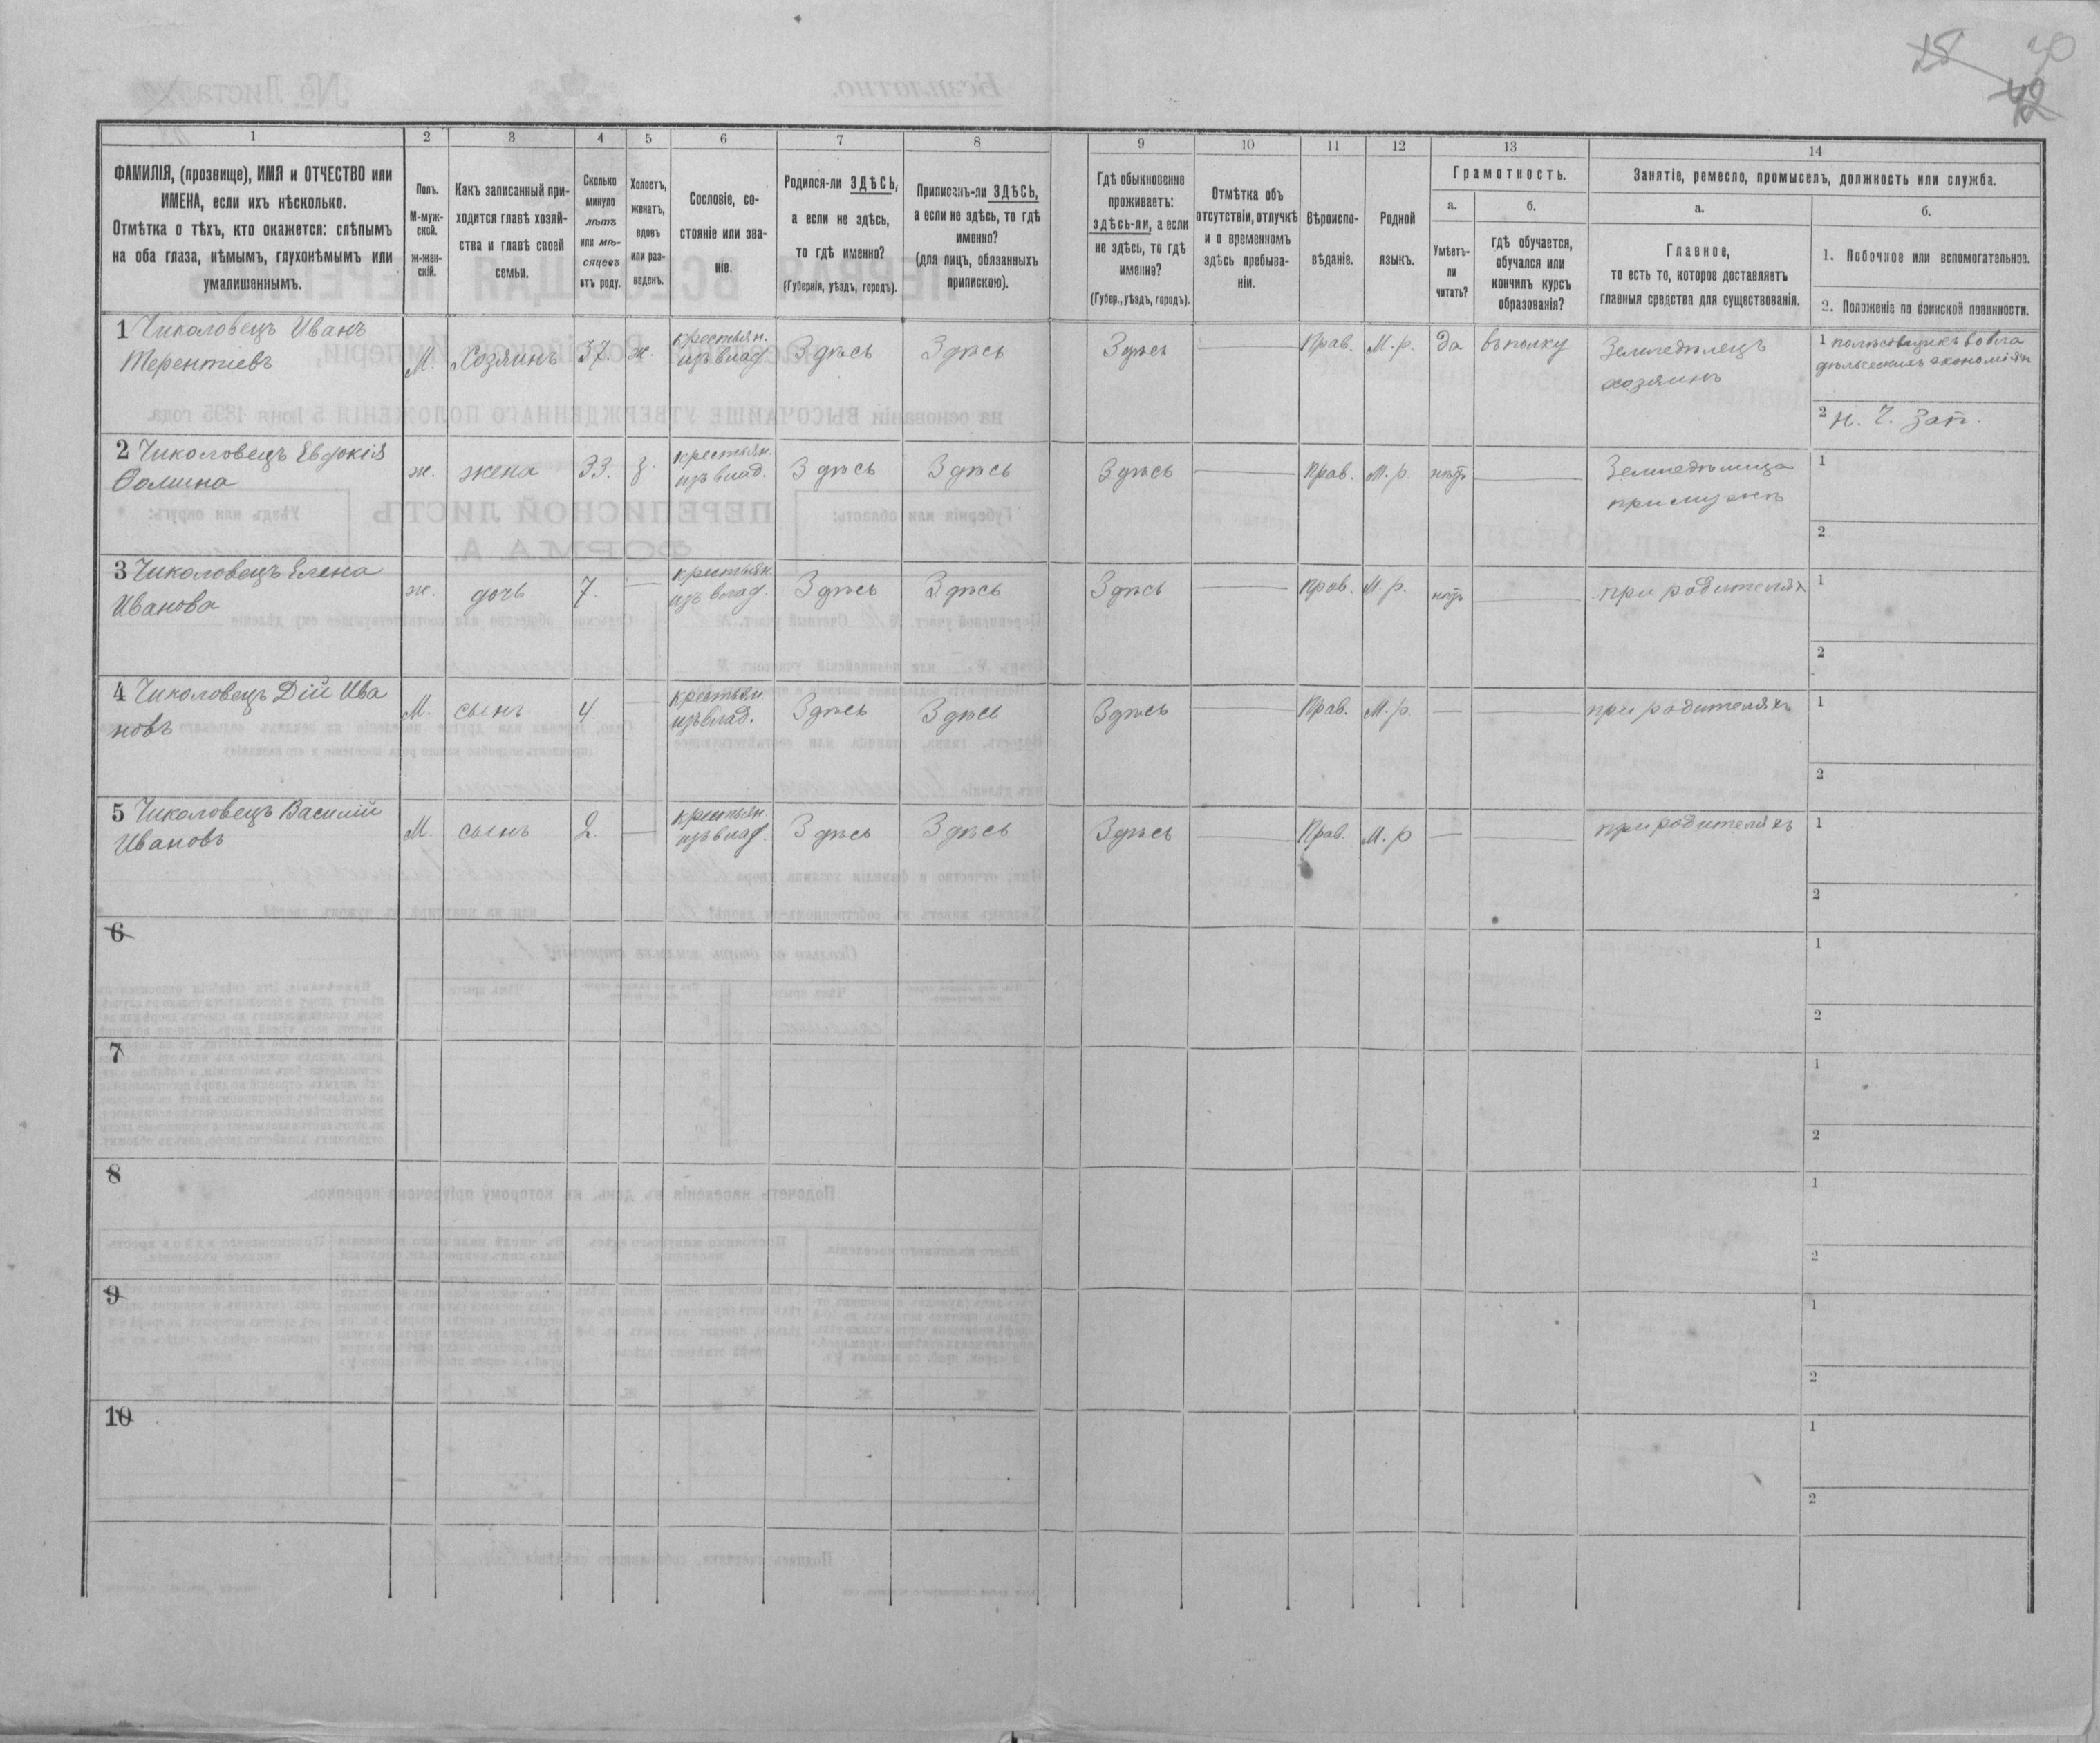 28
30
42
1
2
3
4
5
6
7
8
9
10
11
12
13
14
ФАМИЛІЯ, (прозвище), ИМЯ и ОТЧЕСТВО или
ИМЕНА, если ихъ нѣсколько.
Отмѣтка о тѣхъ, кто окажется: слѣпымъ
на оба глаза, нѣмымъ, глухонѣмымъ или
умалишеннымъ.
Полъ.
М-муж-
ской.
ж-жен-
скій.
Какъ записанный при-
ходится главѣ хозяй-
ства и главѣ своей
семьи.
Сколько
минуло
лѣтъ
или мѣ-
сяцевъ
отъ роду.
Холостъ,
женатъ,
вдовъ
или раз-
веденъ.
Сословіе, со-
стояніе или зва-
ніе.
Родился-ли ЗДѢСЬ,
а если не здѣсь,
то гдѣ именно?
(Губернія, уѣздъ, городъ).
Приписанъ-ли ЗДѢСЬ,
а если не здѣсь, то гдѣ
именно?
(для лицъ, обязанныхъ
припискою).
Гдѣ обыкновенно
проживаетъ:
здѣсь-ли, а если
не здѣсь, то гдѣ
именно?
(Губер., уѣздъ, городъ).
Отмѣтка объ
отсутствіи, отлучкѣ
и о временномъ
здѣсь пребыва-
ніи.
Вѣроиспо-
вѣданіе.
Родной
языкъ.
Грамотность.
а.
Умѣетъ-
ли
читать?
б.
гдѣ обучается,
обучался или
кончилъ курсъ
образованія?
Занятіе, ремесло, промыселъ, должность или служба.
а.
Главное,
то есть то, которое доставляетъ
главныя средства для существованія.
б.
1. Побочное или вспомогательное.
2. Положеніе по воинской повинности.
1 Чиколовецъ Иванъ
Терентиевъ
М.
Хозяинъ
37.
ж.
крестьян.
изъ влад.
Здѣсь
Здѣсь
Здѣсь
Прав.
М.р.
да
въ полку
Земледѣлецъ
хозяинъ
1 полѣсовщикъ во вла
дѣльческихъ экономіях
2 н. ч. зап.
2 Чиколовецъ Евдокія
Ѳомина
ж.
жена
33.
з.
крестьян.
изъ влад.
Здѣсь
Здѣсь
Здѣсь
Прав.
М.р.
нѣтъ
Земледѣлица
при мужѣ
1
2
3 Чиколовецъ Елена
Иванова
ж.
дочь
7.
крестьян.
изъ влад.
Здѣсь
Здѣсь
Здѣсь
Прав.
М.р.
нѣтъ
при родителях
1
2
4 Чиколовецъ Дій Ива
новъ
М.
сынъ
4.
крестьян.
изъ влад.
Здѣсь
Здѣсь
Здѣсь
Прав.
М.р
при родителяхъ
1
2
5 Чиколовецъ Василій
Ивановъ
М.
сынъ
2.
крестьян
изъ влад.
Здѣсь
Здѣсь
Здѣсь
Прав.
М.р
при родителяхъ
1
2
6
1
2
7
1
2
8
1
2
9
1
2
10
1
2